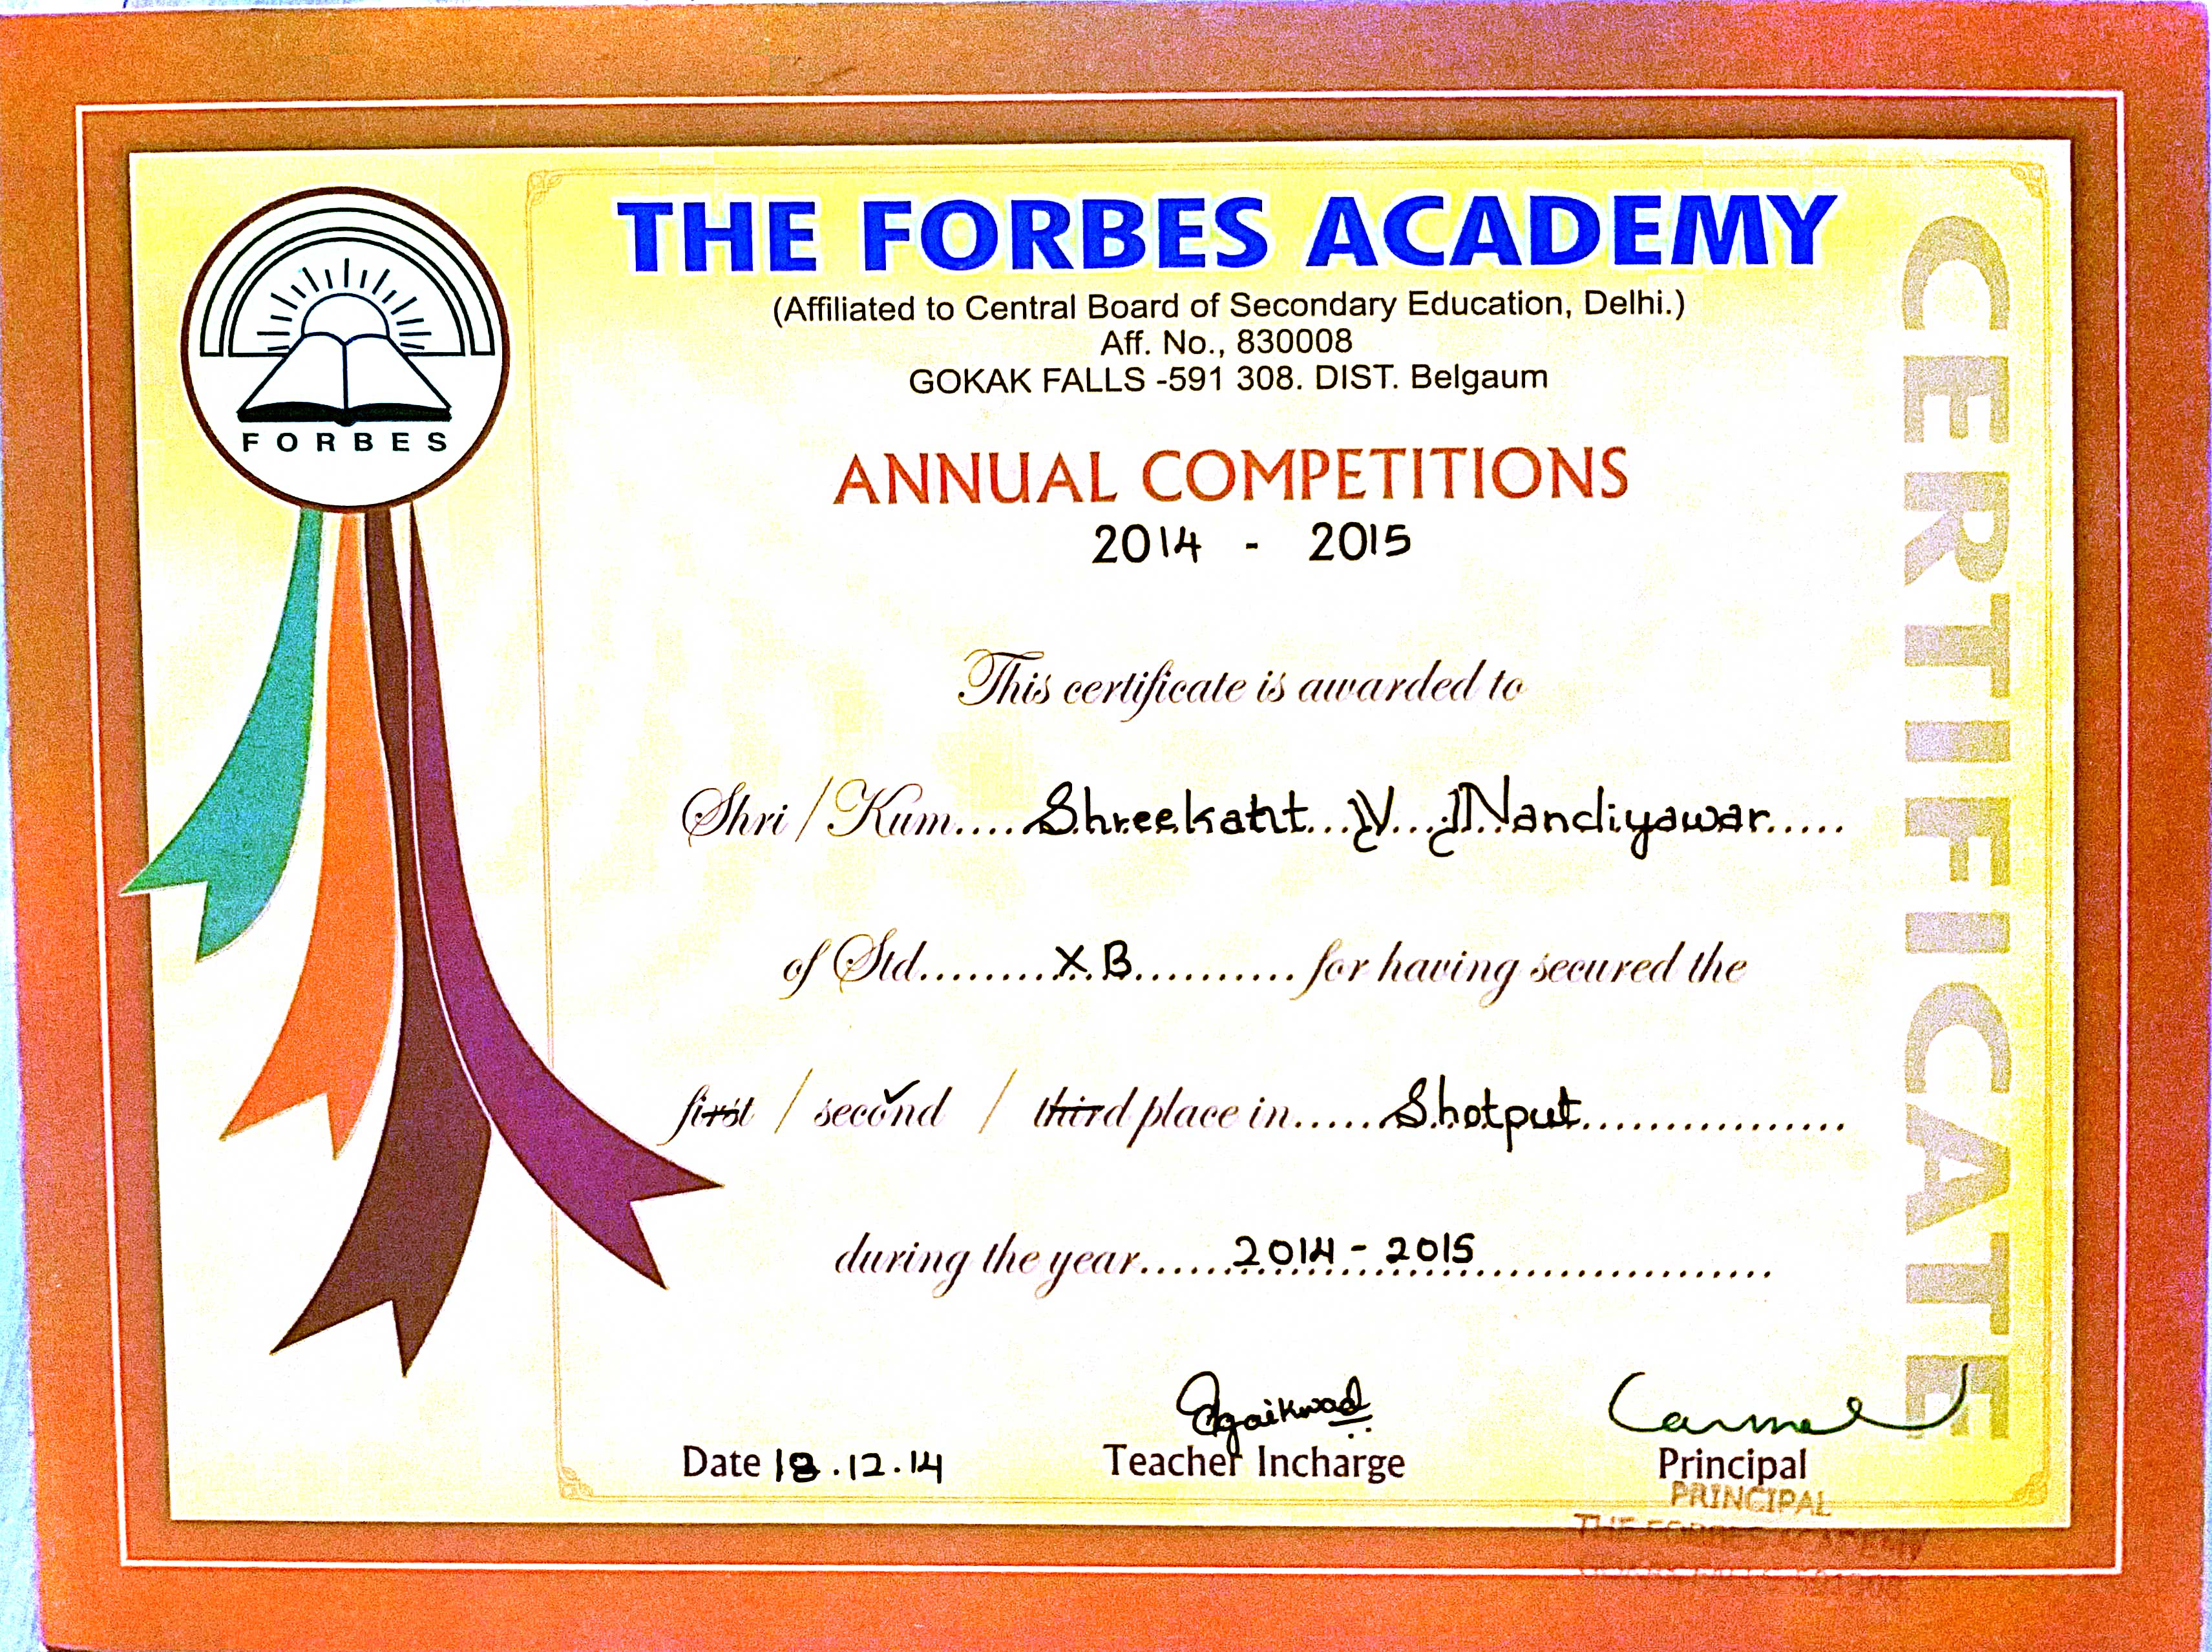 THE FORBES ACADEMY
(Affiliated to Central Board of Secondary Education, Delhi.)
Aff. No., 830008
GOKAK FALLS -591 308. DIST. Belgaum
FORBES
ANNUAL COMPETITIONS
2014 - 2015
This certificate is awarded to
Shri / Kum.... Shreekant V. Nandiyawar
of Std. X B for having secured the
first / second / third place in Shotput
during the year 2014 - 2015
Date 18.12.14
Teacher Incharge
Carmel
Principal
PRINCIPAL
THE FORBES ACADEMY
CERTIFICATE